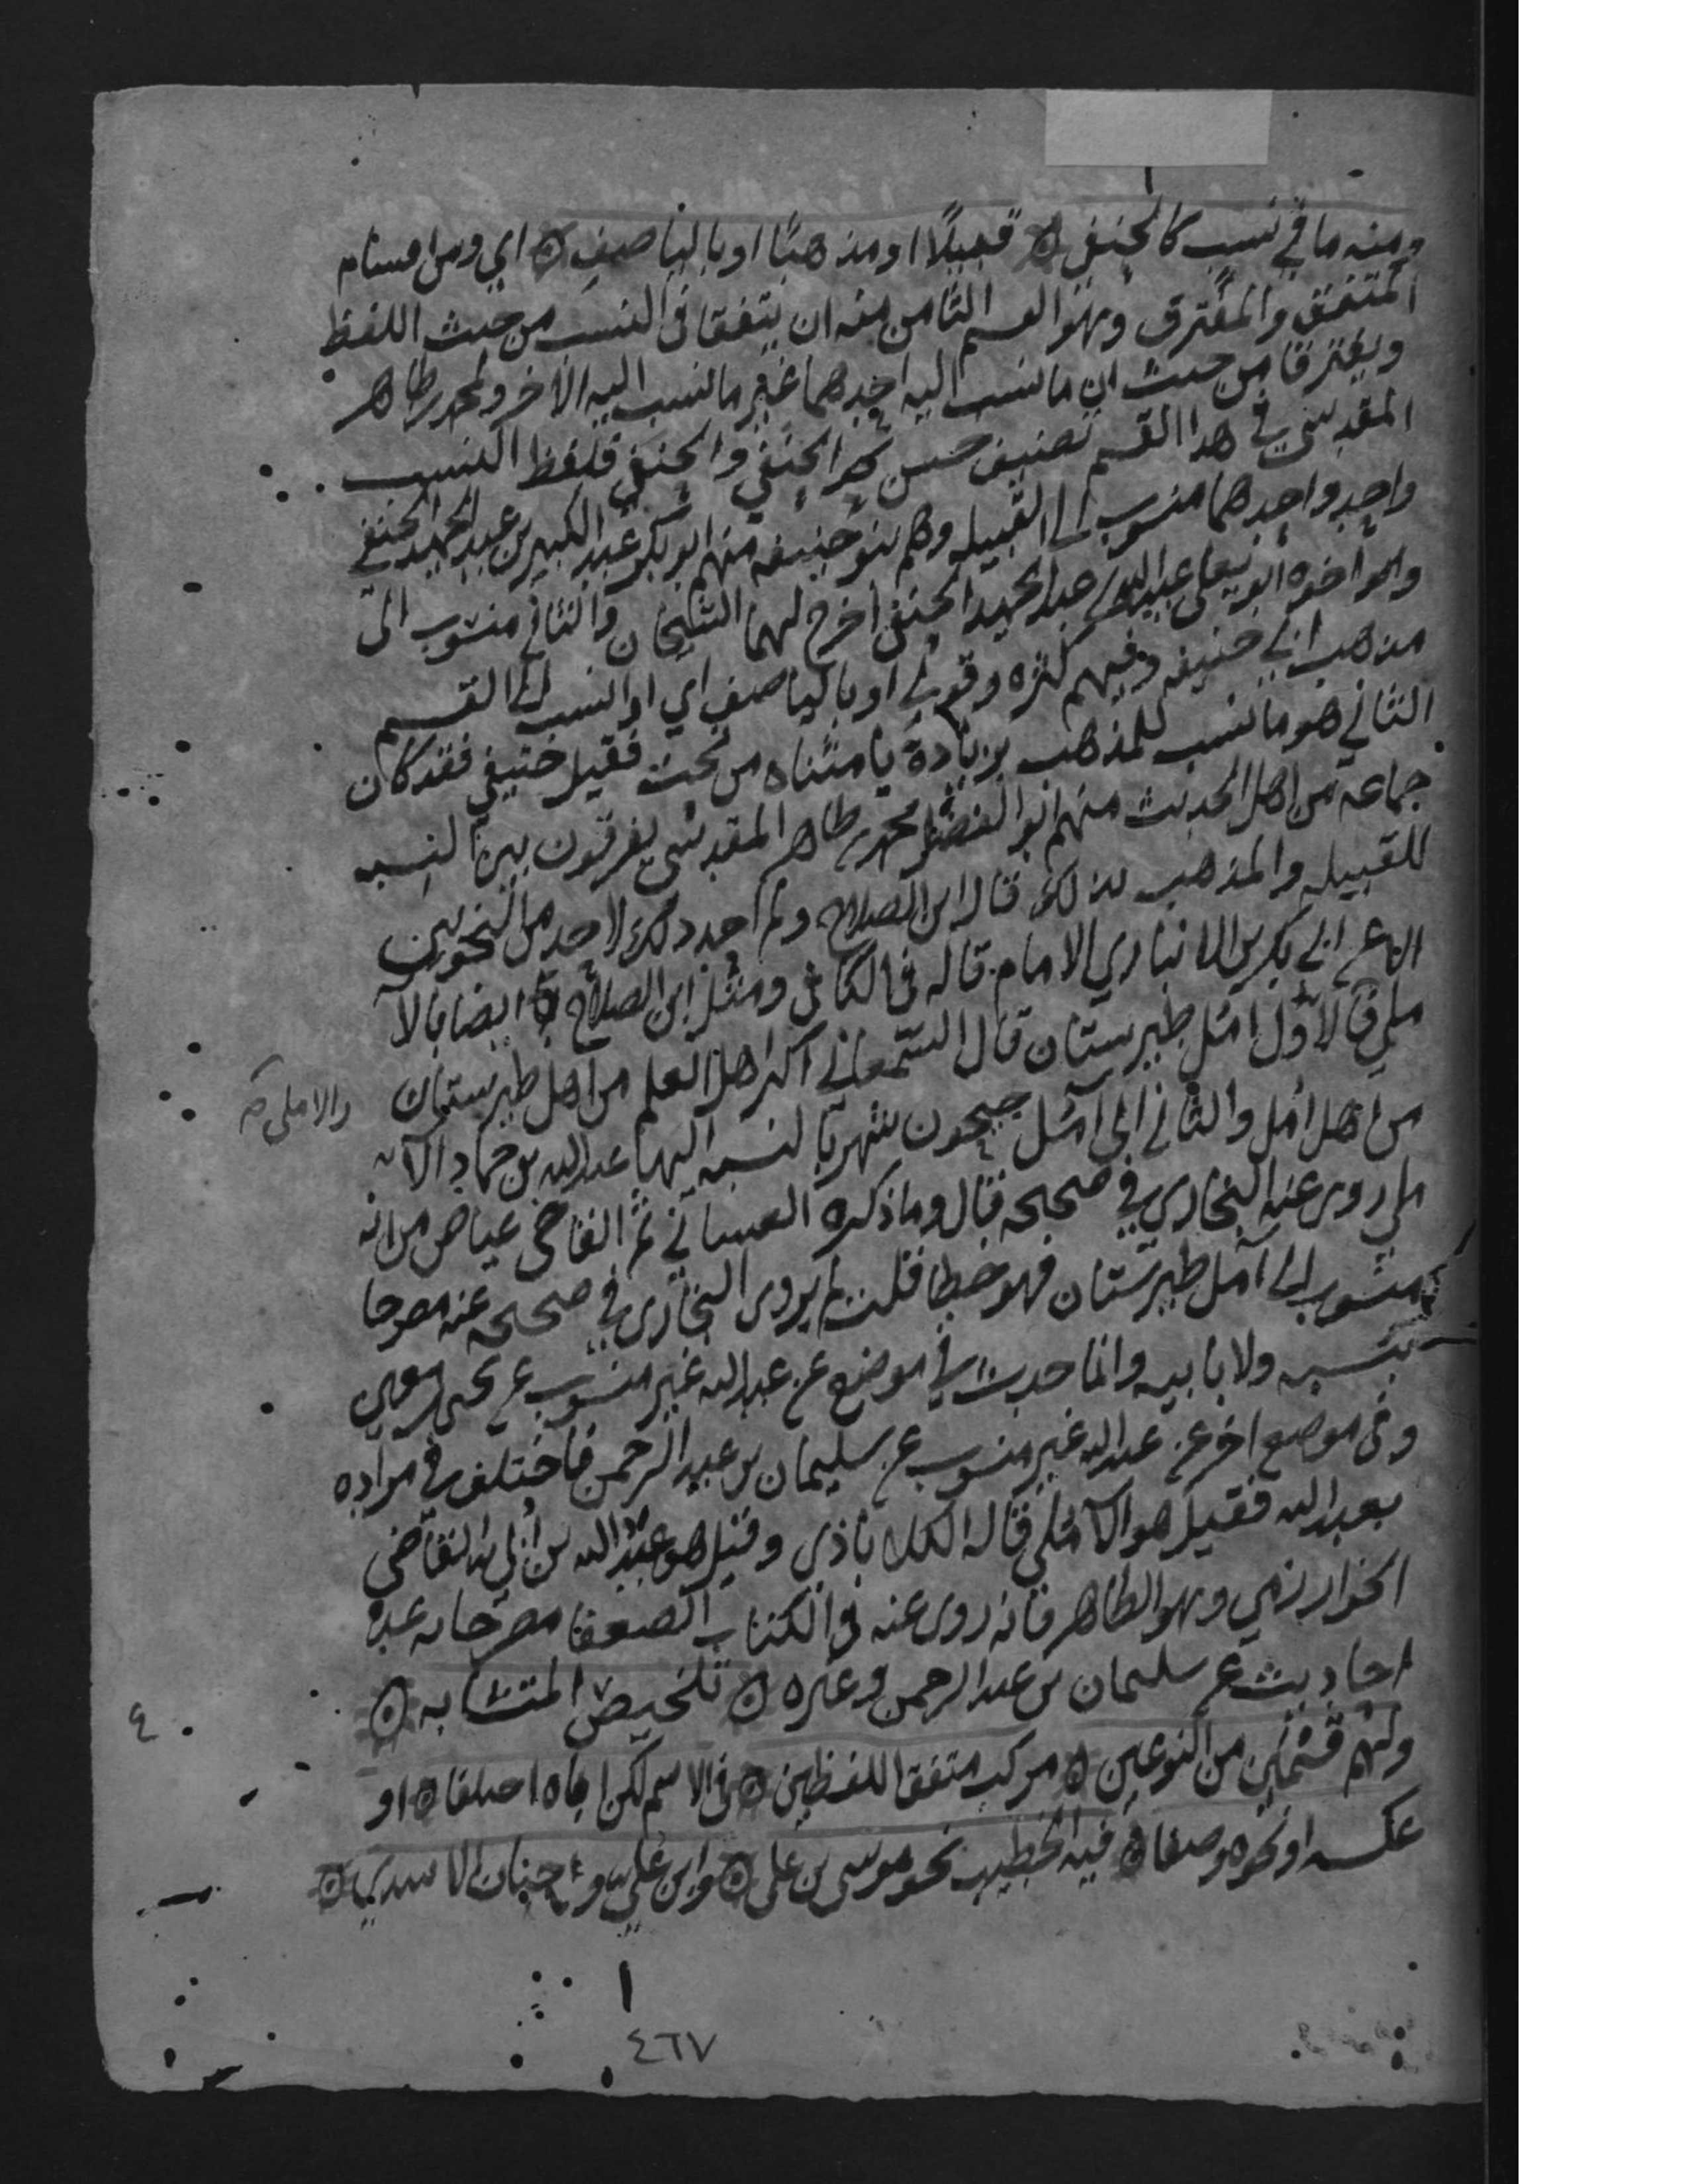 ومنه ما في نسب كالحنفي ه قبيلا او مذهبا او باليا صف ه اي ومن اقسام
المتفق والمفترق وهو القسم الثامن منه ان يتفقا في النسب من حيث اللفظ
ويفترقا من حيث ان ما نسب اليه احدهما غير ما نسب اليه الاخر ولمحمد بن طاهر
المقدسي في هذا القسم تصنيف حسن كالحنفي والحنفي فلفظ النسب
واحد واحدهما منسوب الى القبيله وهم بنو حنيفه منهم ابو بكر عبد الكبير بن عبد المجيد الحنفي
واخوه ابو علي عبيد الله بن عبد المجيد الحنفي اخرج لهما الشيخان والثاني منسوب الى
مذهب ابي حنيفه وفيهم كثره وقولي او باليا صف اي او انسب الى القسم
الثاني هو ما نسب للمذهب بزيادة يا مثناه من تحت فقيل حنيفي فقد كان
جماعه من اهل الحديث منهم ابو الفضل محمد بن طاهر المقدسي يفرقون بين النسبه
للقبيله والمذهب بذلك قال ابن الصلاح ولم اجد ذلك لاحد من النحويين
الا عن ابي بكر بن الانباري الامام قاله في الكافي ومثل ابن الصلاح ايضا بالآ
ملي فالاول آمل طبرستان قال السمعاني اكثر اهل العلم من اهل طبرستان
والاملي صح
من اهل آمل والثاني الى آمل جيحون شهر بالنسبه اليها عبد الله بن حماد الآ
ملي روى عنه البخاري في صحيحه قال وما ذكره الغساني ثم القاضي عياض من انه
منسوب الى آمل طبرستان فهو خطا قلت لم يروى البخاري في صحيحه عنه مصرحا
بنسبه ولا بابيه وانما حدث في موضع عن عبد الله غير منسوب عن يحيى بن معين
وفي موضع اخر عن عبد الله غير منسوب عن سليمان بن عبد الرحمن فاختلف في مراده
بعبد الله فقيل هو الآملي قاله الكلاباذي وقيل هو عبد الله بن ابي القاضي
الخوارزمي وهو الظاهر فانه روى عنه في الكتاب الضعفا مصرحا به عدة
احاديث عن سليمان بن عبد الرحمن وغيره ه تلخيص المتشابه ه
٤
ولهم قسم من النوعين ه مركب متفق اللفظين ه في الاسم لكن اباه اختلفا ه او
عكسه او نحوه وصنفا ه فيه الخطيب نحو موسى بن علي ه وابن علي وحنان الاسدي ه
٤٦٧